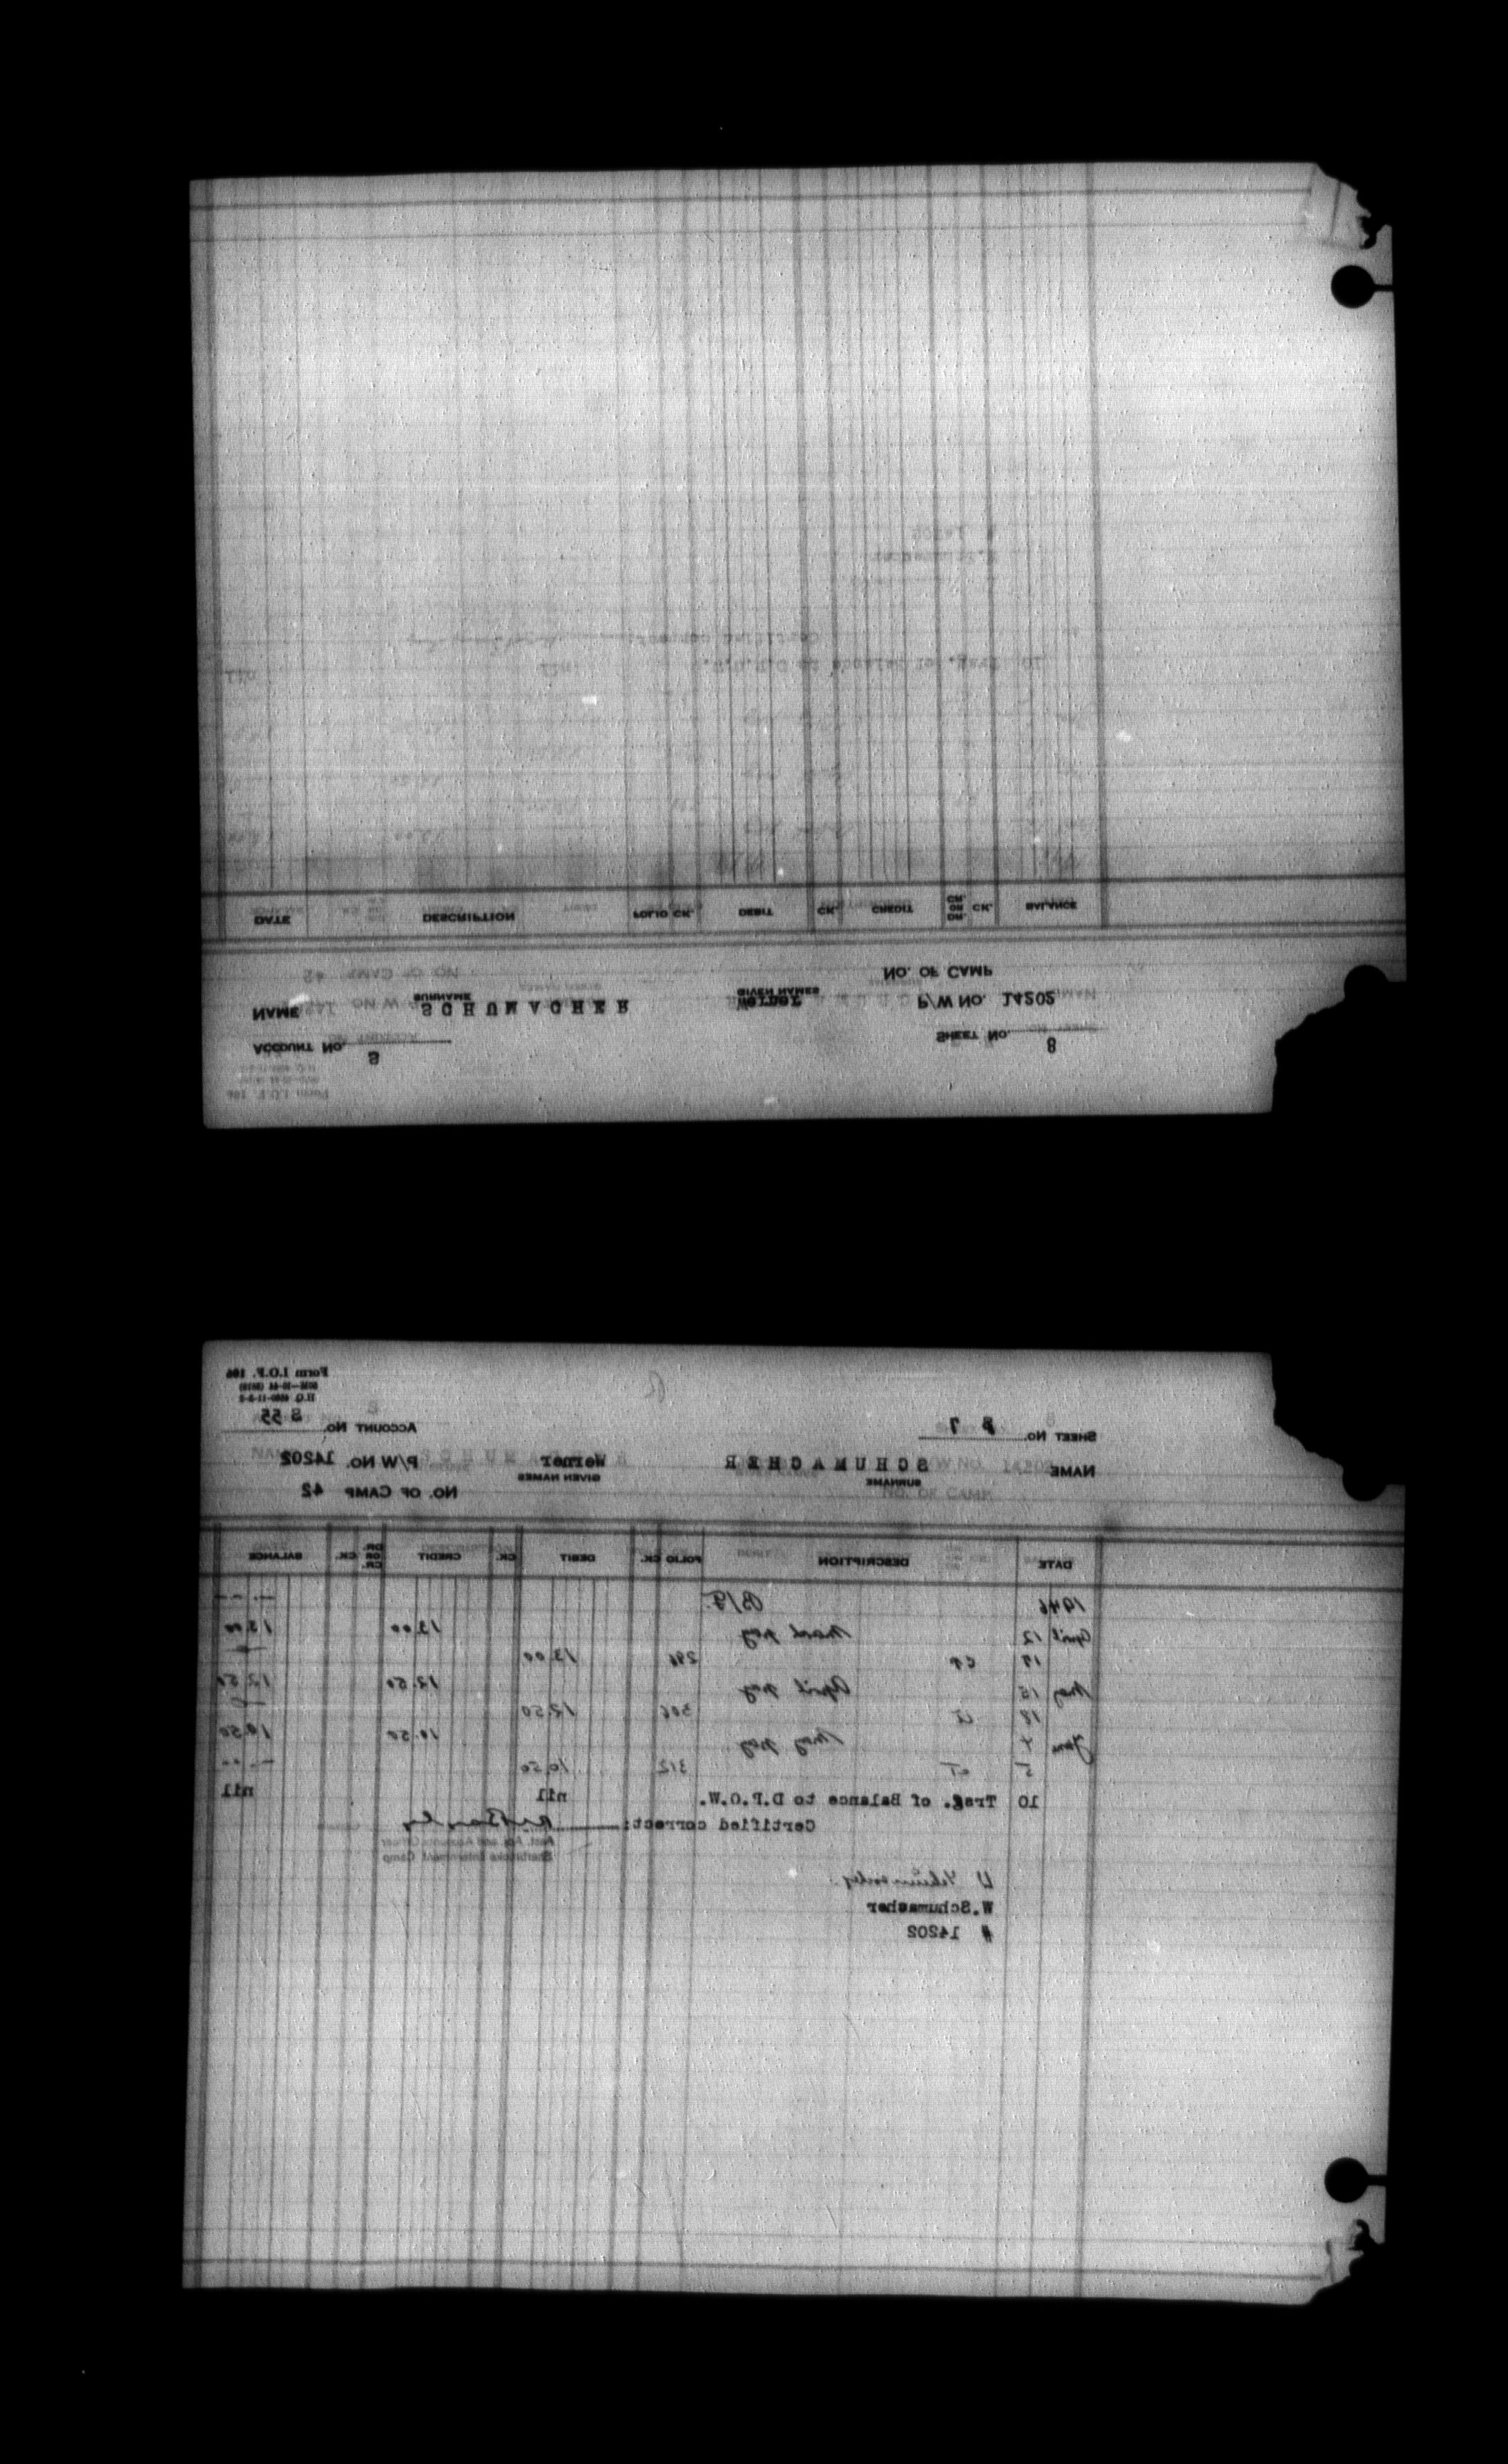 DATE DESCRIPTION FOLIO CK. DEBIT CK. CREDIT DR. OR CR. CK. BALANCE
NO. OF CAMP
NAME SCHUMACHER Werner P/W NO. 14202
SURNAME GIVEN NAMES
ACCOUNT NO. S SHEET NO. 8
Form I.O.F. 106
H.Q. 4080-11-2-2
SHEET NO. 7 ACCOUNT NO. S 55
NAME SCHUMACHER Werner P/W NO. 14202
SURNAME GIVEN NAMES
NO. OF CAMP 42
DATE DESCRIPTION FOLIO CK. DEBIT CK. CREDIT DR. OR CR. CK. BALANCE
1946 B/F. —.——
April 12 March pay 13.00 13.00
19 296 13.00
May 15 April pay 12.50 12.50
18 306 12.50
June 4 May pay 10.50 10.50
5 312 10.50 —.——
10 Trsg. of Balance to D.P.O.W. nil nil
Certified correct:
Asst. Adj. and Accounts Officer
Sherbrooke Internment Camp
W. Schumacher
W.Schumacher
# 14202